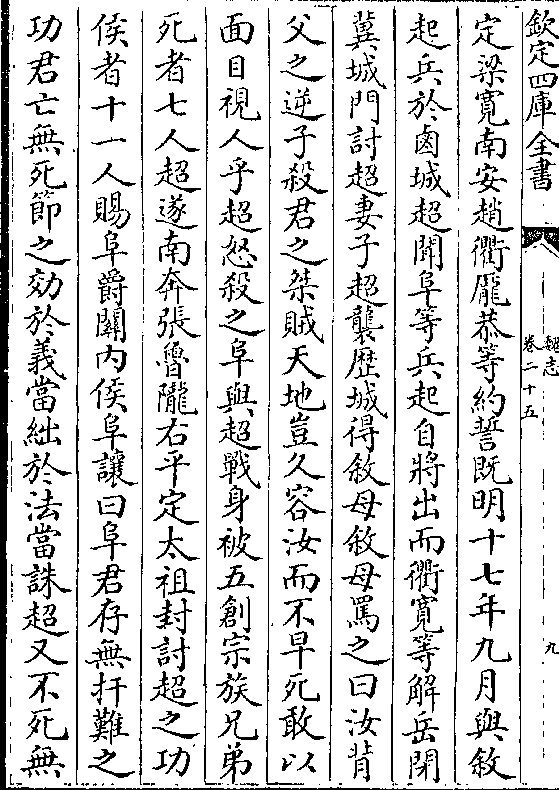 欽定四庫全書
魏志
卷二十五
九
定梁寛南安趙衢龎恭等約誓既明十七年九月與敘
起兵於鹵城超聞阜等兵起自將出而衢寛等解岳閉
冀城門討超妻子超襲歴城得敘母敘母罵之曰汝背
父之逆子殺君之桀賊天地豈久容汝而不早死敢以
面目視人乎超怒殺之阜與超戰身被五創宗族兄弟
死者七人超遂南奔張魯隴右平定太祖封討超之功
侯者十一人賜阜爵關内侯阜讓曰阜君存無扞難之
功君亡無死節之効於義當絀於法當誅超又不死無